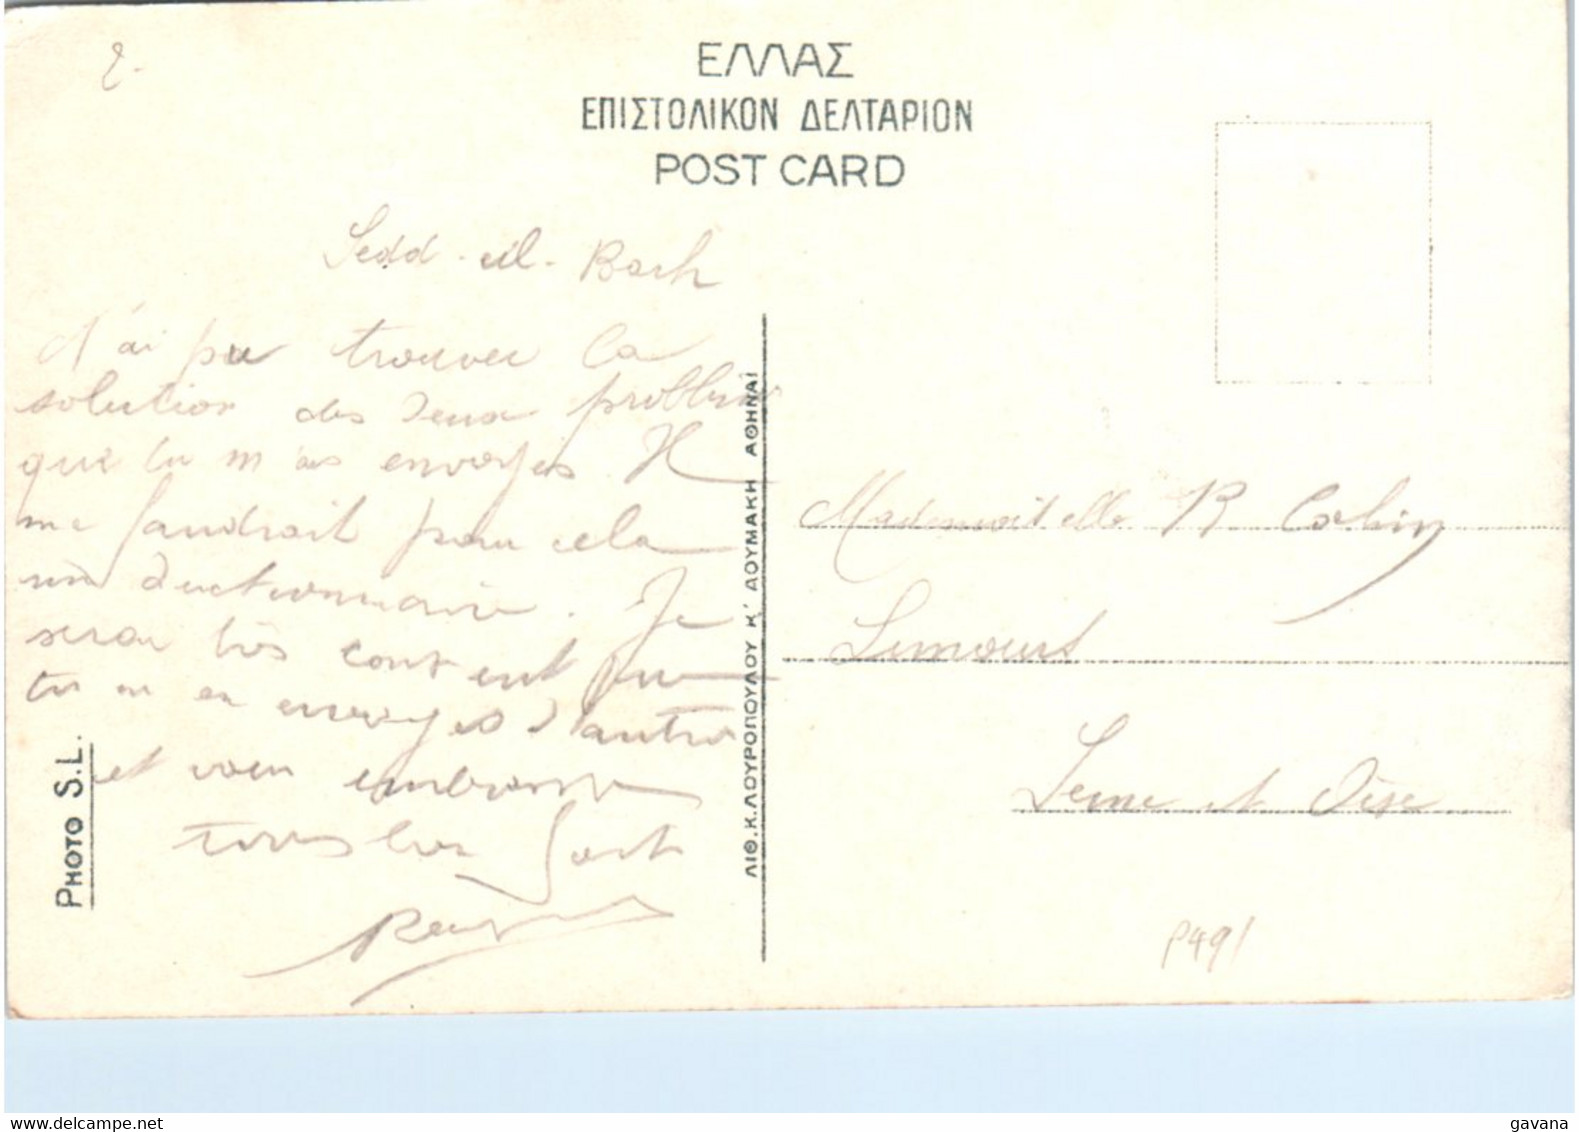 ΕΛΛΑΣ
ΕΠΙΣΤΟΛΙΚΟΝ ΔΕΛΤΑΡΙΟΝ
POST CARD
Sedd-ul-Bach
J'ai pu trouver la
solution des deux problèmes
que tu m'as envoyés. Il
me faudrait pour cela
un dictionnaire. Je
serai très content que
tu m'en envoyes d'autres
et vous embrasse
tous bien fort
PHOTO S.L.
ΛΙΘ.Κ.ΛΟΥΡΟΠΟΥΛΟΥ Κ' ΔΟΥΜΑΚΗ ΑΘΗΝΑΙ
Mademoiselle R Colin
Limours
Seine et Oise
P491
www.delcampe.net
gavana